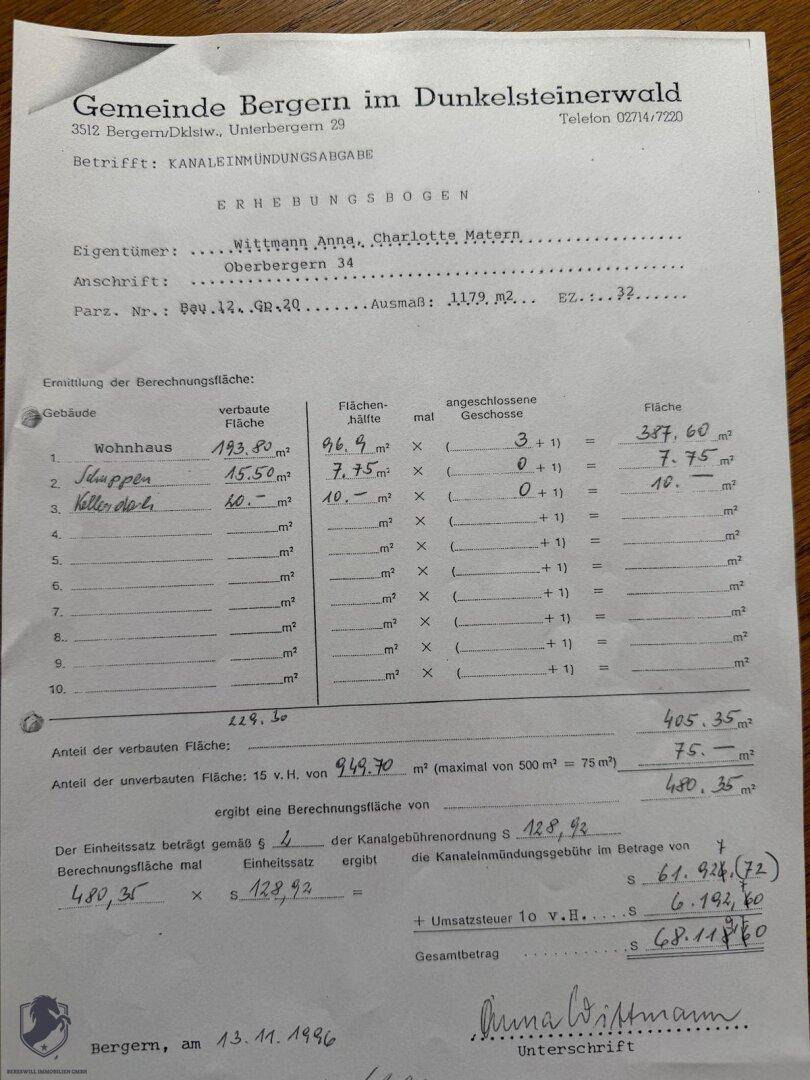 Gemeinde Bergern im Dunkelsteinerwald
3512 Bergern/Dklstw., Unterbergern 29 Telefon 02714/7220
Betrifft: KANALEINMÜNDUNGSABGABE
ERHEBUNGSBOGEN
Eigentümer: Wittmann Anna, Charlotte Matern
Anschrift: Oberbergern 34
Parz. Nr.: Bau.12, Gp.20 Ausmaß: 1179 m2 EZ.: 32
Ermittlung der Berechnungsfläche:
Gebäude verbaute Fläche Flächenhälfte mal angeschlossene Geschosse Fläche
1. Wohnhaus 193.80 m² 96.9 m² × ( 3 + 1) = 387.60 m²
2. Schuppen 15.50 m² 7.75 m² × ( 0 + 1) = 7.75 m²
3. Kellerdach 20.– m² 10.– m² × ( 0 + 1) = 10.– m²
4. m² m² × ( + 1) = m²
5. m² m² × ( + 1) = m²
6. m² m² × ( + 1) = m²
7. m² m² × ( + 1) = m²
8. m² m² × ( + 1) = m²
9. m² m² × ( + 1) = m²
10. m² m² × ( + 1) = m²
229.30
Anteil der verbauten Fläche: 405.35 m²
Anteil der unverbauten Fläche: 15 v. H. von 949.70 m² (maximal von 500 m² = 75 m²) 75.– m²
ergibt eine Berechnungsfläche von 480.35 m²
Der Einheitssatz beträgt gemäß § 4 der Kanalgebührenordnung S 128,92
Berechnungsfläche mal Einheitssatz ergibt die Kanaleinmündungsgebühr im Betrage von
480,35 × S 128,92 = S 61.927,(72)
+ Umsatzsteuer 10 v.H. S 6.192,
Gesamtbetrag S 68.11
Bergern, am 13.11.1996
Anna Wittmann
Unterschrift
BERESWILL IMMOBILIEN GMBH